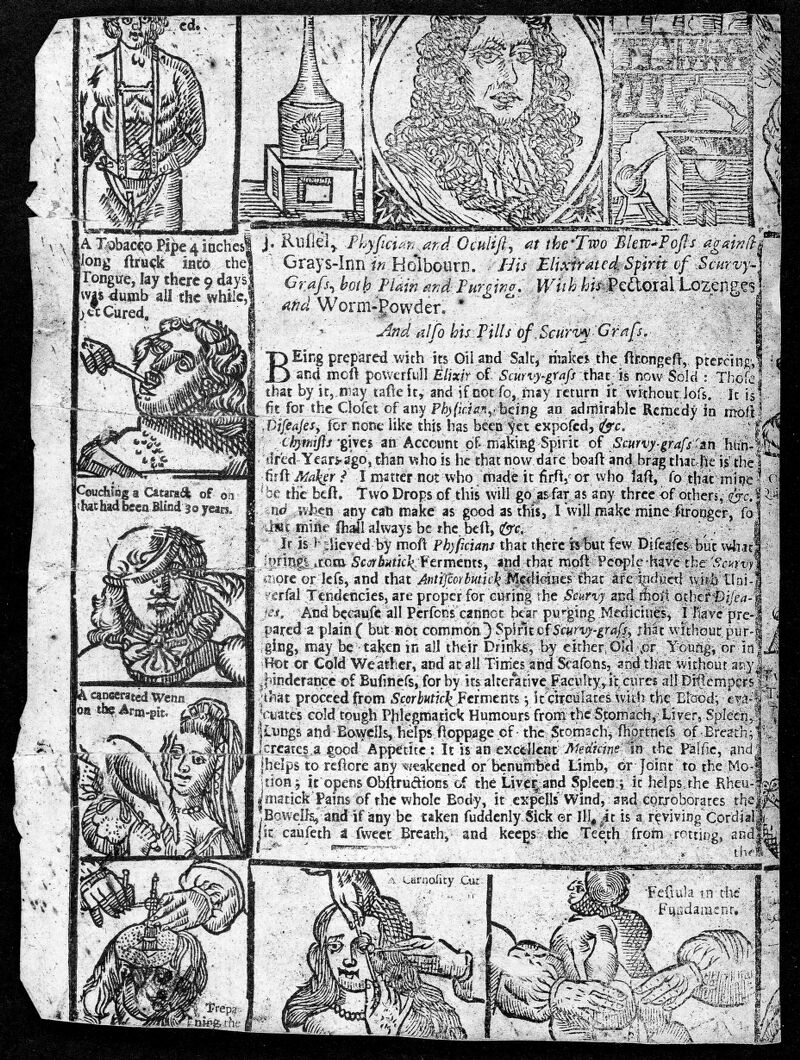 ed.
A Tobacco Pipe 4 inches
long ſtruck into the
Tongue, lay there 9 days
was dumb all the while,
yet Cured.
Couching a Cataract of on
that had been Blind 30 years.
A cancerated Wenn
on the Arm-pit.
Trepa-
ning the
J. Ruſſel, Phyſician and Oculiſt, at the Two Blew-Poſts againſt
Grays-Inn in Holbourn. His Elixirated Spirit of Scurvy-
Graſs, both Plain and Purging. With his Pectoral Lozenges
and Worm-Powder.
And alſo his Pills of Scurvy Graſs.
BEing prepared with its Oil and Salt, makes the ſtrongeſt, piercing,
and moſt powerfull Elixir of Scurvy-graſs that is now Sold: Thoſe
that by it, may taſte it, and if not ſo, may return it without loſs. It is
fit for the Cloſet of any Phyſician, being an admirable Remedy in moſt
Diſeaſes, for none like this has been yet expoſed, &c.
Chymiſts gives an Account of making Spirit of Scurvy-graſs an hun-
dred Years ago, than who is he that now dare boaſt and brag that he is the
firſt Maker? I matter not who made it firſt, or who laſt, ſo that mine
be the beſt. Two Drops of this will go as far as any three of others, &c.
and when any can make as good as this, I will make mine ſtronger, ſo
that mine ſhall always be the beſt, &c.
It is believed by moſt Phyſicians that there is but few Diſeaſes but what
ſprings from Scorbutick Ferments, and that moſt People have the Scurvy
more or leſs, and that Antiſcorbutick Medicines that are indued with Uni-
verſal Tendencies, are proper for curing the Scurvy and moſt other Diſea-
ſes. And becauſe all Perſons cannot bear purging Medicines, I have pre-
pared a plain (but not common) Spirit of Scurvy-graſs, that without pur-
ging, may be taken in all their Drinks, by either Old or Young, or in
Hot or Cold Weather, and at all Times and Seaſons, and that without any
hinderance of Buſineſs, for by its alterative Faculty, it cures all Diſtempers
that proceed from Scorbutick Ferments; it circulates with the Blood, eva-
cuates cold tough Phlegmatick Humours from the Stomach, Liver, Spleen,
Lungs and Bowells, helps ſtoppage of the Stomach, ſhortneſs of Breath;
creates a good Appetite: It is an excellent Medicine in the Palſie, and
helps to reſtore any weakened or benumbed Limb, or Joint to the Mo-
tion; it opens Obſtructions of the Liver and Spleen; it helps the Rheu-
matick Pains of the whole Body, it expells Wind, and corroborates the
Bowells, and if any be taken ſuddenly Sick or Ill, it is a reviving Cordial
it cauſeth a ſweet Breath, and keeps the Teeth from rotting, and
the
A Carnoſity Cut
Feſtula in the
Fundament.